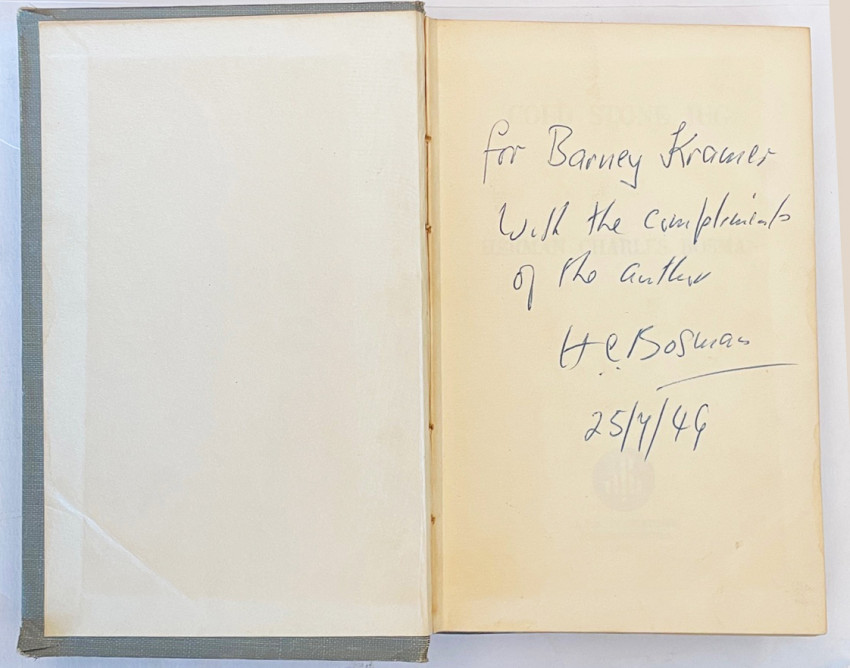 for Barney Kramer
with the compliments
of the author
H. C. Bosman
25/7/49